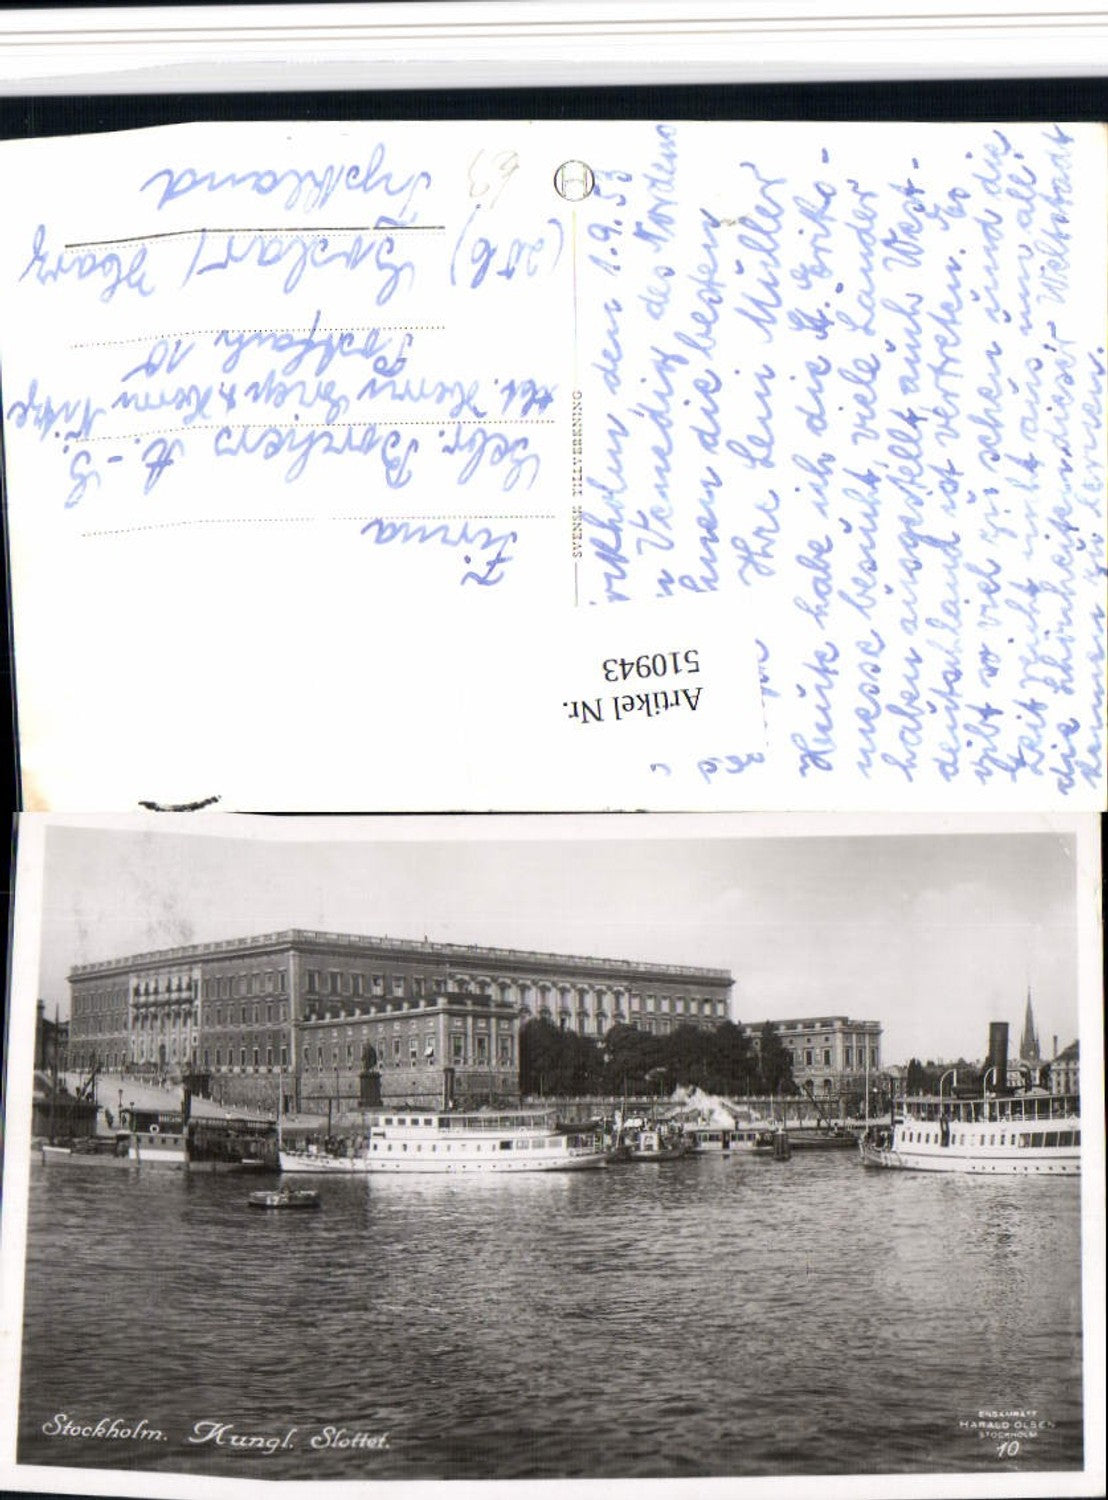 Stockholm den 1.9.53
Venedig des Nordens
die besten
Ihre Leni Müller
Heute habe ich die St. Eriks-
messe besucht viele Länder
haben ausgestellt auch West-
deutschland ist vertreten. Es
gibt so viel zu sehen und die
Zeit reicht nicht aus um all
die Schönheiten dieser Weltstadt
kennen zu lernen.
SVENSK TILLVERKNING
Firma
Gebr. Borchers A.-G.
Postfach 10
(20b) Goslar / Harz
Tyskland
63
Artikel Nr.
510943
Stockholm. Kungl. Slottet.
ENSAMRÄTT
HARALD OLSEN
STOCKHOLM
10